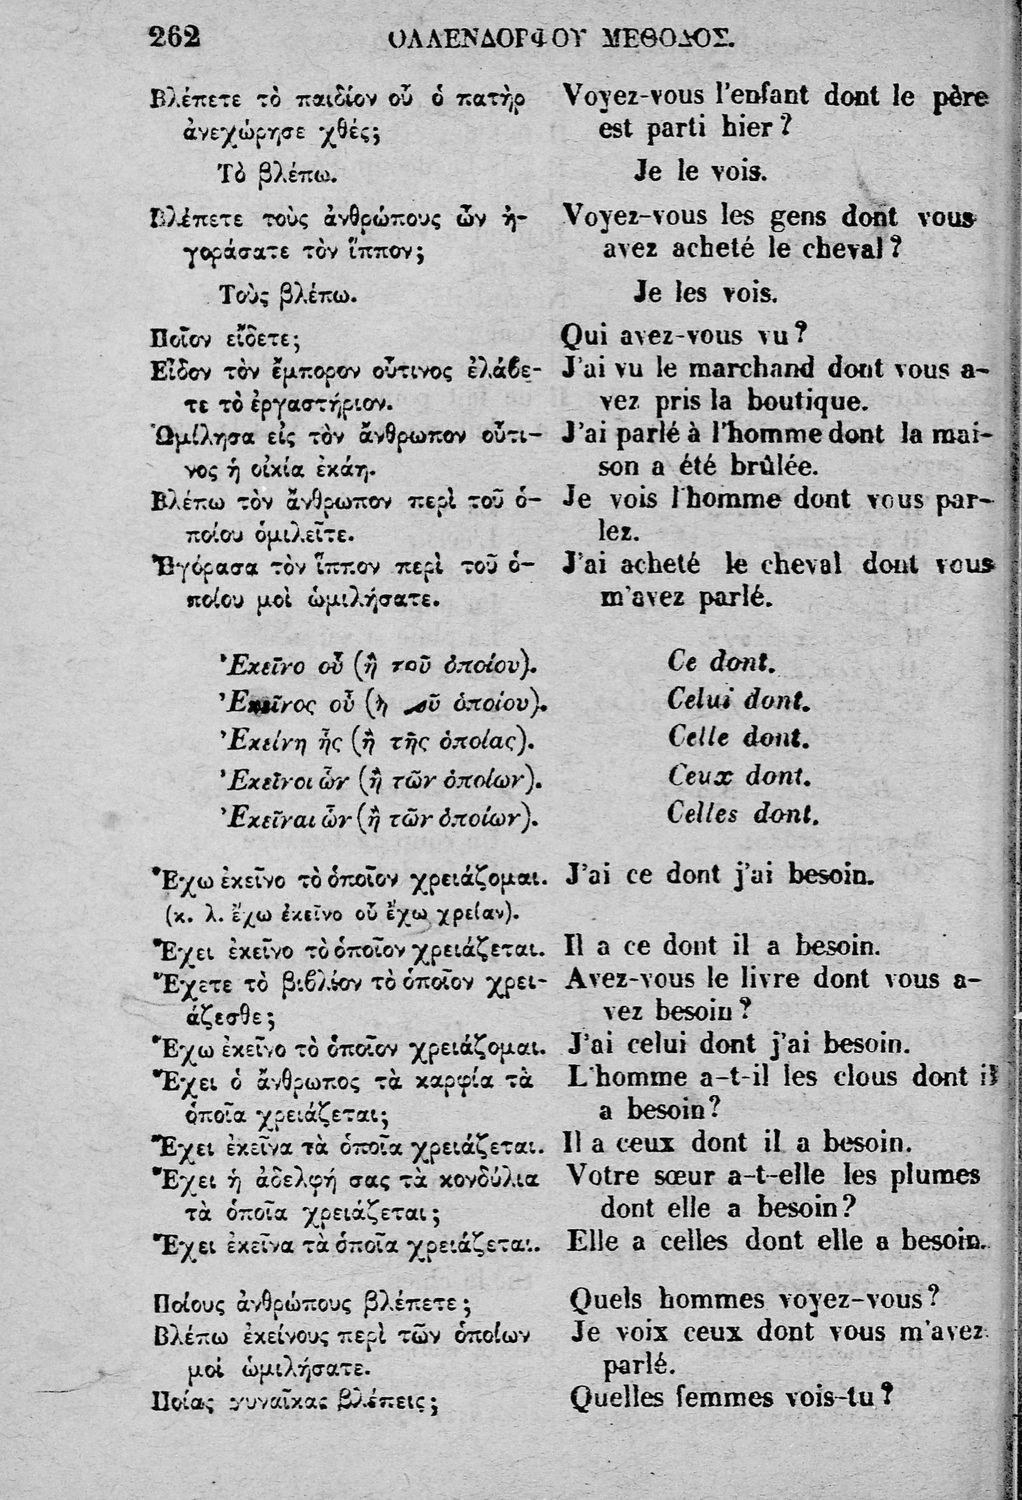 262 ΟΛΛΕΝΔΟΡΦΟΥ ΜΕΘΟΔΟΣ.
Βλέπετε τὸ παιδίον οὗ ὁ πατὴρ
ἀνεχώρησε χθές;
Τὸ βλέπω.
Βλέπετε τοὺς ἀνθρώπους ὧν ἠ-
γοράσατε τὸν ἵππον;
Τοὺς βλέπω.
Ποῖον εἴδετε;
Εἶδον τὸν ἔμπορον οὗτινος ἐλάβε-
τε τὸ ἐργαστήριον.
Ὡμίλησα εἰς τὸν ἄνθρωπον οὗτι-
νος ἡ οἰκία ἐκάη.
Βλέπω τὸν ἄνθρωπον περὶ τοῦ ὁ-
ποίου ὁμιλεῖτε.
Ἠγόρασα τὸν ἵππον περὶ τοῦ ὁ-
ποίου μοὶ ὡμιλήσατε.
Ἐκεῖνο οὗ (ἢ τοῦ ὁποίου).
Ἐκεῖνος οὗ (ἢ τοῦ ὁποίου).
Ἐκείνη ἧς (ἢ τῆς ὁποίας).
Ἐκεῖνοι ὧν (ἢ τῶν ὁποίων).
Ἐκεῖναι ὧν (ἢ τῶν ὁποίων).
Ἔχω ἐκεῖνο τὸ ὁποῖον χρειάζομαι.
(κ. λ. ἔχω ἐκεῖνο οὗ ἔχω χρείαν).
Ἔχει ἐκεῖνο τὸ ὁποῖον χρειάζεται.
Ἔχετε τὸ βιβλίον τὸ ὁποῖον χρει-
άζεσθε;
Ἔχω ἐκεῖνο τὸ ὁποῖον χρειάζομαι.
Ἔχει ὁ ἄνθρωπος τὰ καρφία τὰ
ὁποῖα χρειάζεται;
Ἔχει ἐκεῖνα τὰ ὁποῖα χρειάζεται.
Ἔχει ἡ ἀδελφή σας τὰ κονδύλια
τὰ ὁποῖα χρειάζεται;
Ἔχει ἐκεῖνα τὰ ὁποῖα χρειάζεται.
Ποίους ἀνθρώπους βλέπετε;
Βλέπω ἐκείνους περὶ τῶν ὁποίων
μοὶ ὡμιλήσατε.
Ποίας γυναῖκας βλέπεις;
Voyez-vous l'enfant dont le père
est parti hier?
Je le vois.
Voyez-vous les gens dont vous
avez acheté le cheval?
Je les vois.
Qui avez-vous vu?
J'ai vu le marchand dont vous a-
vez pris la boutique.
J'ai parlé à l'homme dont la mai-
son a été brûlée.
Je vois l'homme dont vous par-
lez.
J'ai acheté le cheval dont vous
m'avez parlé.
Ce dont.
Celui dont.
Celle dont.
Ceux dont.
Celles dont.
J'ai ce dont j'ai besoin.
Il a ce dont il a besoin.
Avez-vous le livre dont vous a-
vez besoin?
J'ai celui dont j'ai besoin.
L'homme a-t-il les clous dont il
a besoin?
Il a ceux dont il a besoin.
Votre sœur a-t-elle les plumes
dont elle a besoin?
Elle a celles dont elle a besoin.
Quels hommes voyez-vous?
Je voix ceux dont vous m'avez
parlé.
Quelles femmes vois-tu?